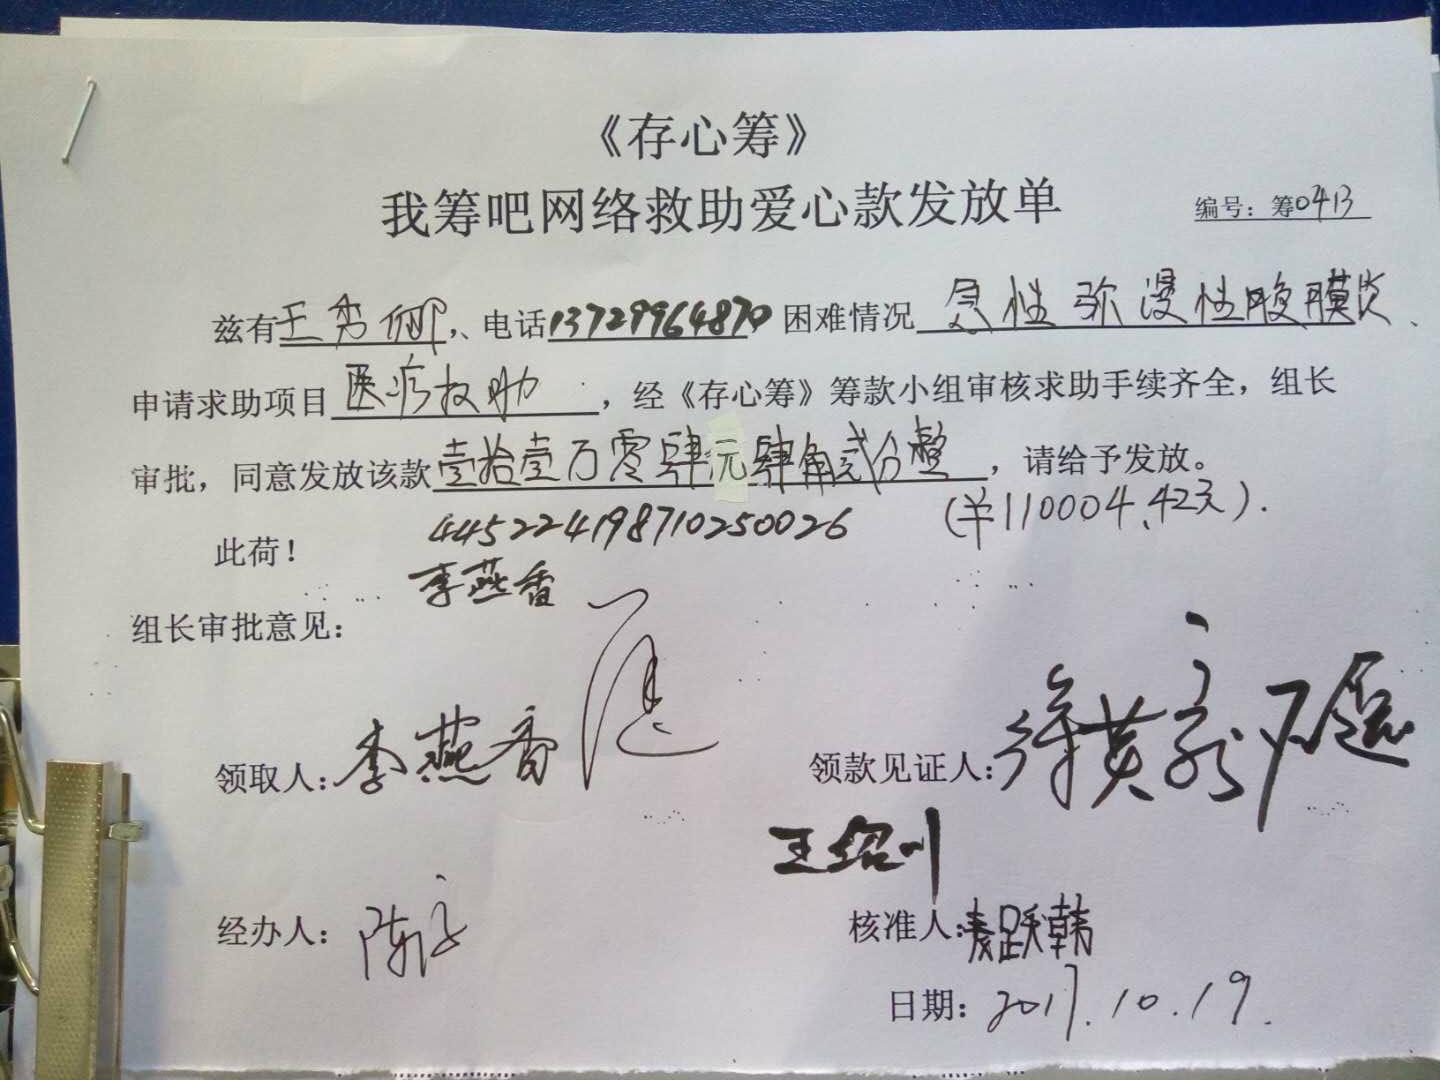 《存心筹》
我筹吧网络救助爱心款发放单
编号：筹0413
兹有王秀卿、电话13729964870困难情况急性弥漫性腹膜炎、
申请求助项目医疗救助，经《存心筹》筹款小组审核求助手续齐全，组长
审批，同意发放该款壹拾壹万零肆元肆角贰分整，请给予发放。
(￥110004.42元).
445224198710250026
此荷！
李燕香
组长审批意见：
领取人：李燕香
领款见证人：
王绍川
经办人：陈
核准人：麦跃韩
日期：2017.10.19.